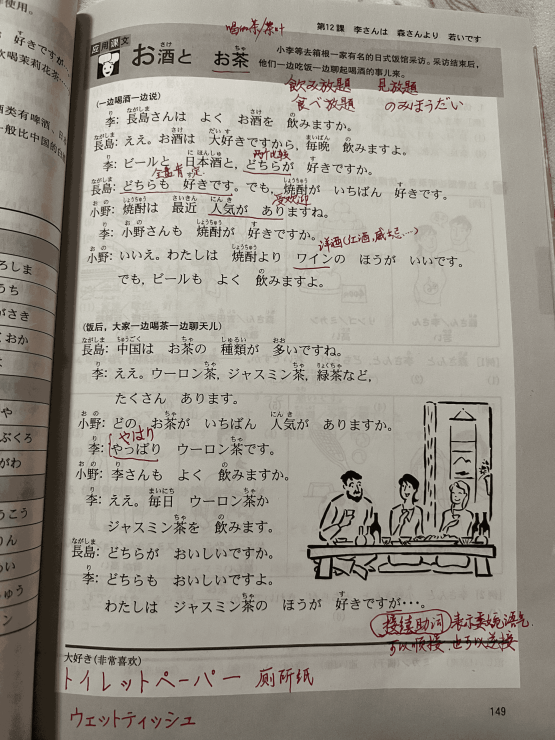 喝的茶/茶叶
第12課 李さんは 森さんより 若いです
应用课文
お酒と お茶
小李等去箱根一家有名的日式饭馆采访。采访结束后，
他们一边吃饭一边聊起喝酒的事儿来。
飲み放題 見放題
食べ放題 のみほうだい
(一边喝酒一边说)
李: 長島さんは よく お酒を 飲みますか。
長島: ええ。お酒は 大好きですから, 毎晩 飲みますよ。
李: ビールと 日本酒と, どちらが 好きですか。
長島: どちらも 好きです。でも, 焼酎が いちばん 好きです。
小野: 焼酎は 最近 人気が ありますね。
李: 小野さんも 焼酎が 好きですか。
小野: いいえ。わたしは 焼酎より ワインの ほうが いいです。
でも, ビールも よく 飲みますよ。
(饭后，大家一边喝茶一边聊天儿)
長島: 中国は お茶の 種類が 多いですね。
李: ええ。ウーロン茶, ジャスミン茶, 緑茶など,
たくさん あります。
小野: どの お茶が いちばん 人気が ありますか。
やはり
李: やっぱり ウーロン茶です。
小野: 李さんも よく 飲みますか。
李: ええ。毎日 ウーロン茶か
ジャスミン茶を 飲みます。
長島: どちらが おいしいですか。
李: どちらも おいしいですよ。
わたしは ジャスミン茶の ほうが 好きですが…。
接续助词 表示委婉语气
可以顺接 也可以逆接
大好き(非常喜欢)
トイレットペーパー 厕所纸
ウェットティッシュ
149